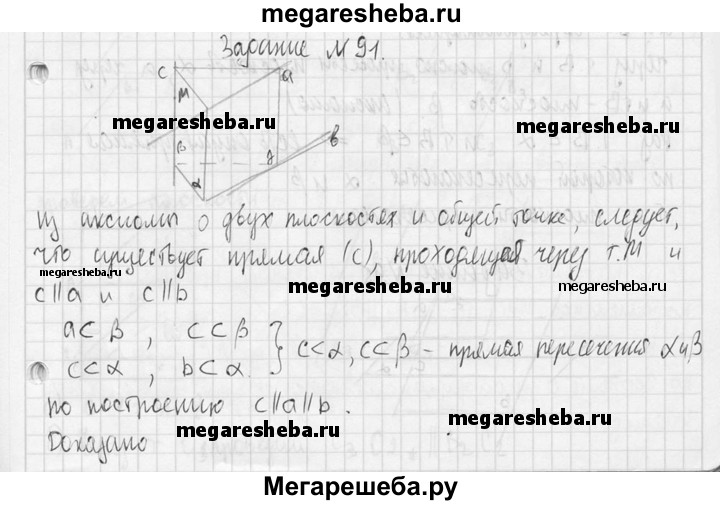 megaresheba.ru
Задание №91.
c a
M
megaresheba.ru megaresheba.ru
β γ в
α
Из аксиомы о двух плоскостях и общей точке, следует,
что существует прямая (c), проходящая через т.M и
megaresheba.ru megaresheba.ru
c∥a и c∥b
a⊂β, c⊂β
c⊂α, b⊂α } c⊂α, c⊂β – прямая пересечения α и β
по построению c∥a∥b.
megaresheba.ru
Доказано megaresheba.ru
Мегарешеба.ру